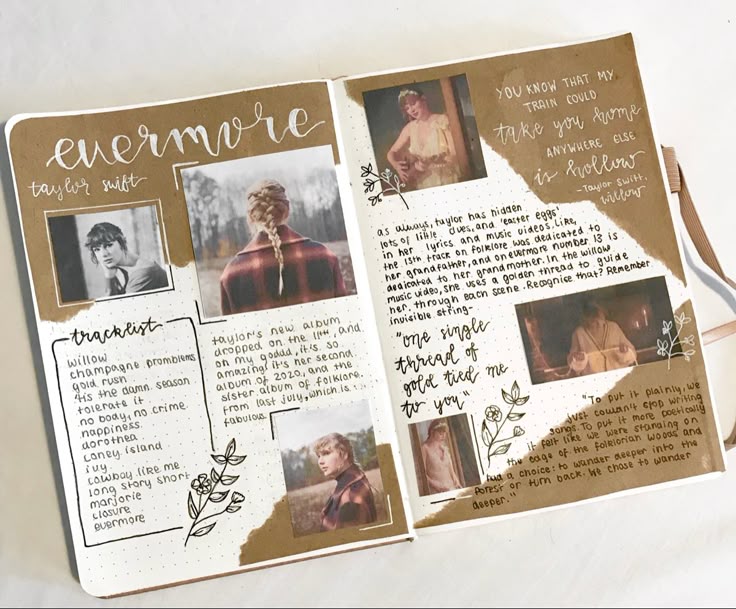 evermore
taylor swift
tracklist
willow
champagne problems
gold rush
'tis the damn season
tolerate it
no body, no crime.
happiness.
dorothea
coney island
ivy
cowboy like me
long story short
marjorie
closure
evermore
taylor's new album
dropped on the 11th, and
oh my godad, it is so
amazing! it's her second
album of 2020, and the
sister album of folklore
from last july, which is
fabulous
YOU KNOW THAT MY
TRAIN COULD
take you home
ANYWHERE ELSE
is hollow
- Taylor Swift,
willow
as always, taylor has hidden
lots of little clues, and 'easter eggs'
in her lyrics and music videos. Like,
the 13th track on folklore was dedicated to
her grandfather, and on evermore number 13 is
dedicated to her grandmother. In the willow
music video, she uses a golden thread to guide
her through each scene. Recognise that? Remember
invisible string-
"one single
thread of
gold tied me
to you"
"To put it plainly, we
just couldn't stop writing
songs. To put it more poetically
it felt like we were standing on
the edge of the folklorian woods and
had a choice: to wander deeper into the
forest or turn back. We chose to wander
deeper."